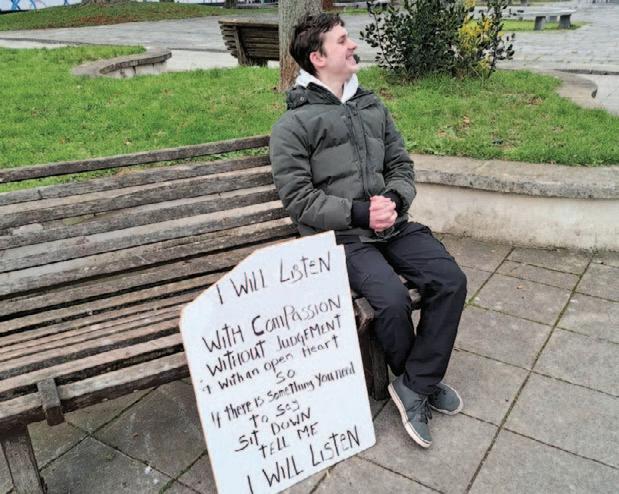 I WILL LISTEN
WITH COMPASSION
WITHOUT JUDGEMENT
& With an open Heart
SO
If there is something You need
TO Say
SIT DOWN
TELL ME
I WILL LISTEN